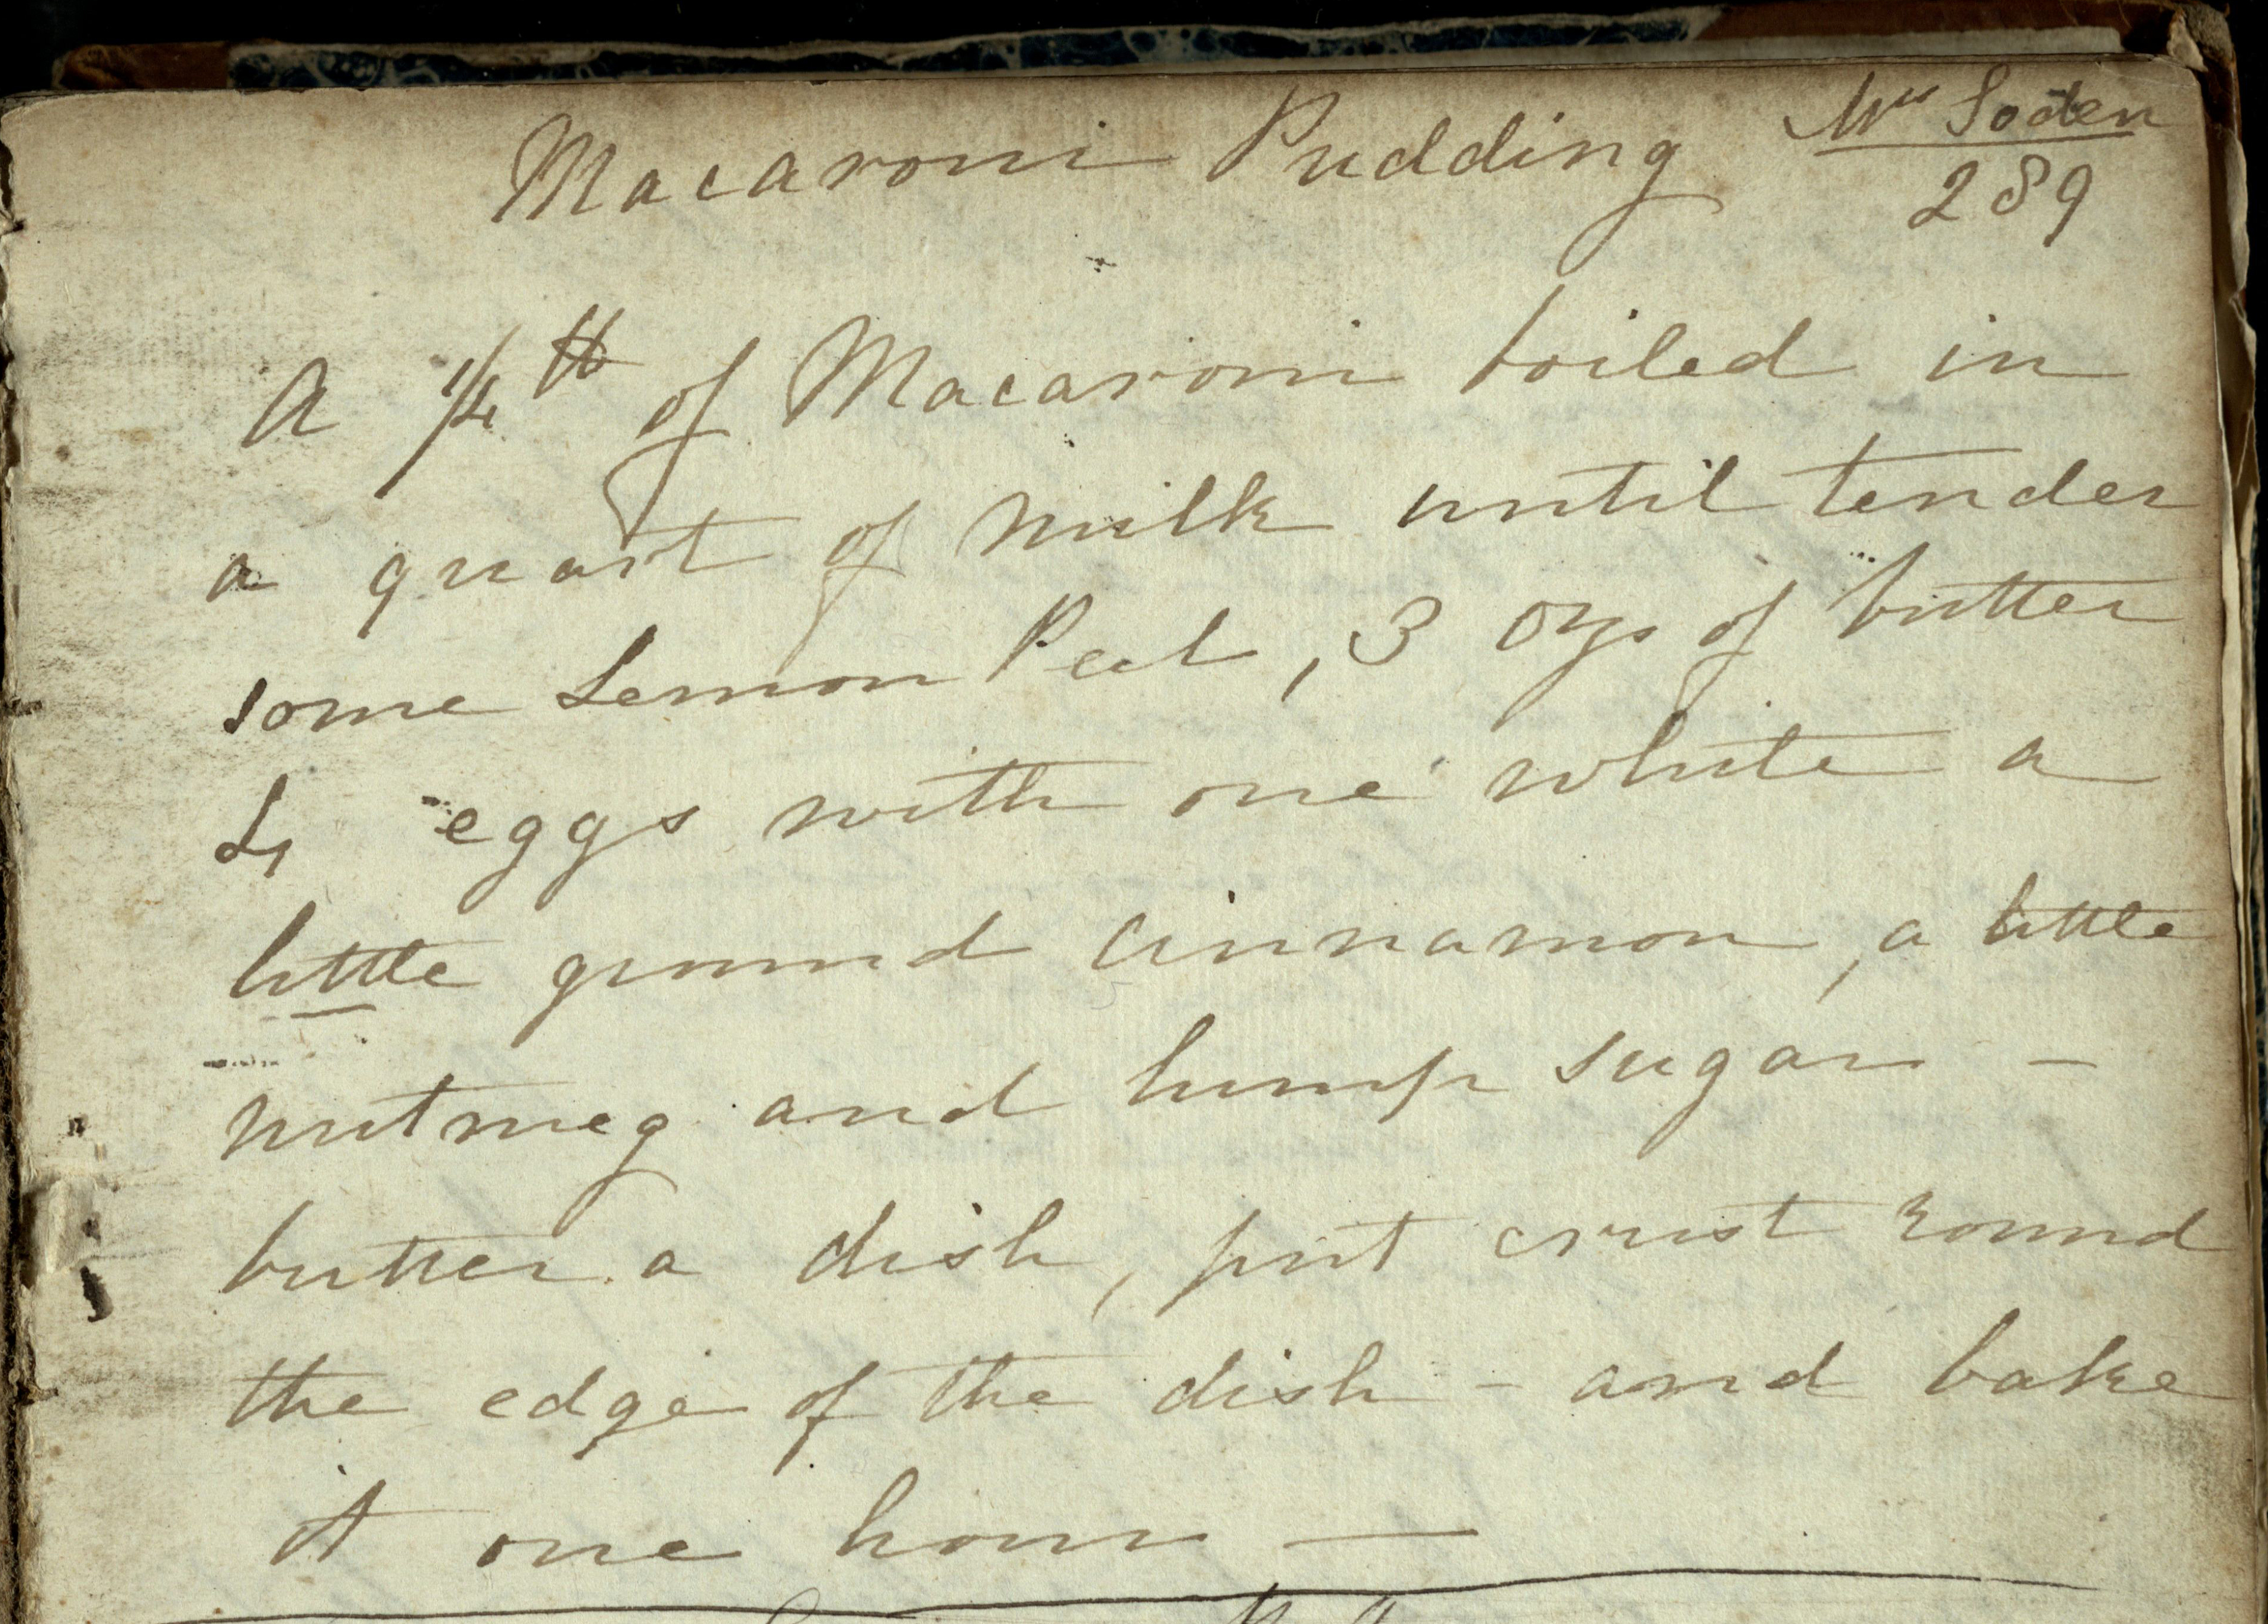 Macaroni Pudding Mrs Soden
289
A 1/4 lb of Macaroni boiled in
a quart of milk until tender
some Lemon Peel, 3 ozs of butter
4 eggs with one white a
little ground cinnamon, a little
nutmeg and lump sugar -
butter a dish, put crust round
the edge of the dish - and bake
it one hour —